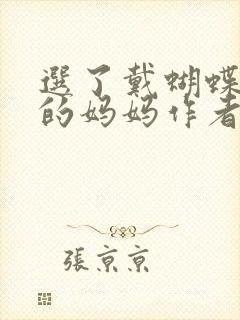 選了戴蝴蝶
的妈妈作者
張亰亰